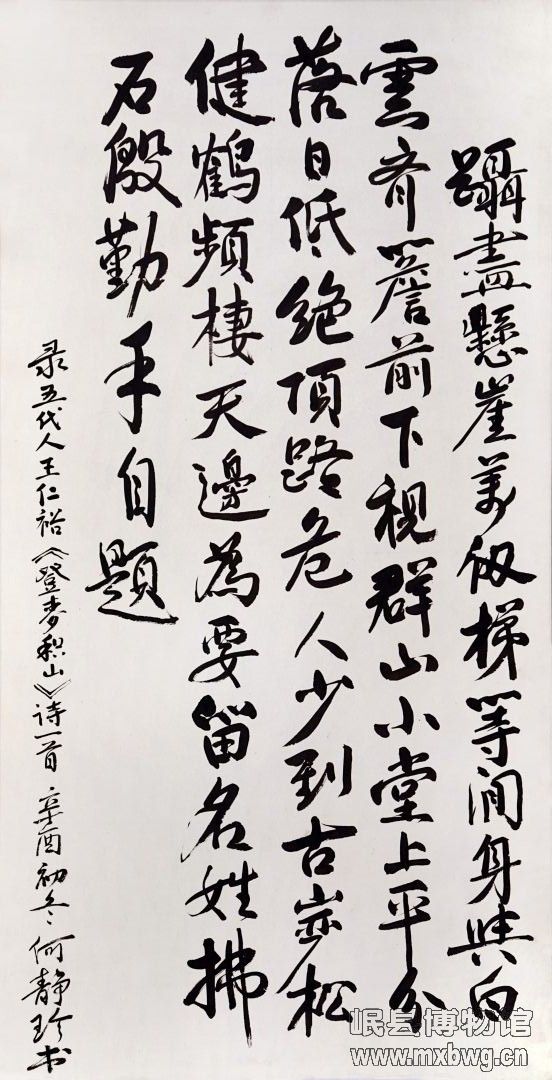 蹑盡懸崖萬仭梯等闲身與白
雲齊簷前下視群山小堂上平分
落日低絶頂路危人少到古岩松
健鶴頻棲天邊為要留名姓拂
石殷勤手自題
录五代人王仁裕《登麦积山》诗一首 辛酉初冬 何静珍书
岷县博物馆
www.mxbwg.cn